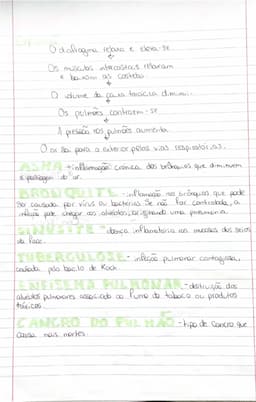 O diafragma relaxa e eleva-se
Os músculos intercostais relaxam
e baixam as costelas
O volume da caixa torácica diminui
Os pulmões contraem-se
A pressão nos pulmões aumenta
O ar sai para o exterior pelas vias respiratórias.
ASMA - inflamação crónica dos brônquios que diminuem
a passagem do ar.
BRONQUITE - inflamação nos brônquios que pode
ser causada por vírus ou bactérias. Se não for controlada, a
infeção pode chegar aos alvéolos, originando uma pneumonia.
SINUSITE - doença inflamatória das mucosas dos seios
da face.
TUBERCULOSE - infeção pulmonar contagiosa,
causada pelo bacilo de Koch.
ENFISEMA PULMONAR - destruição dos
alvéolos pulmonares associado ao fumo do tabaco ou produtos
tóxicos.
CANCRO DO PULMÃO - tipo de cancro que
causa mais mortes.